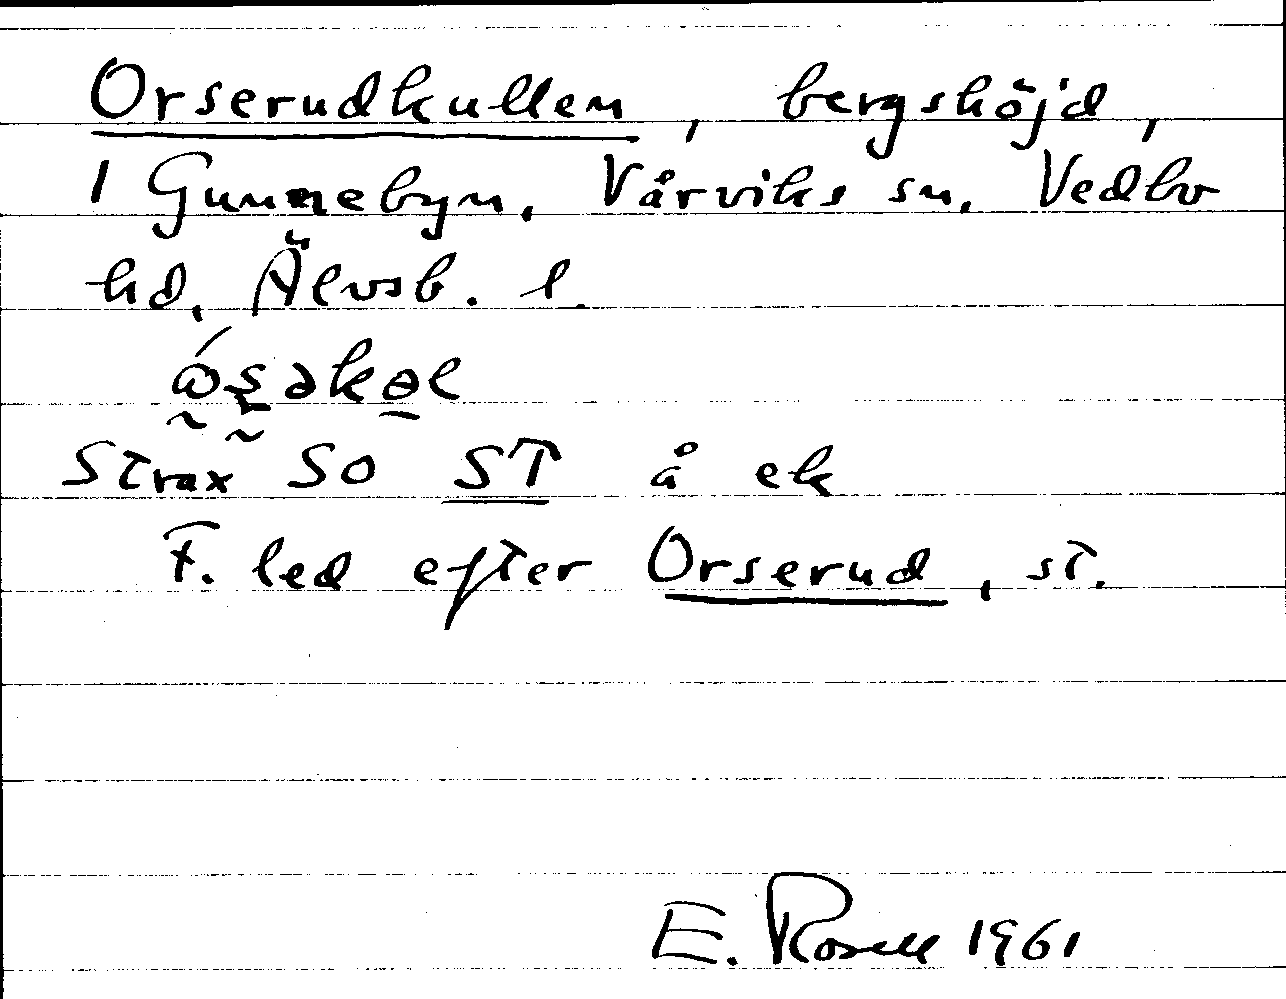 Orserudkullen, bergshöjd,
1 Gunnebyn, Vårviks sn, Vedbo
hd, Älvsb. l.
Strax SO ST å ek
F. led efter Orserud, st.
E. Rosell 1961